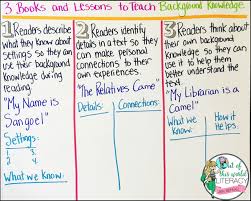 3 Books and Lessons to Teach Background Knowledge
1 Readers describe
what they know about
settings so they can
use their background
knowledge during
reading.
"My Name is
Sangoel"
Settings:
1
2
3
4
What we Know:
2 Readers identify
details in a text so they
can make personal
connections to their
own experiences.
"The Relatives Came"
Details: Connections:
3 Readers think about
their own background
knowledge so they can
use it to help them
better understand the
text.
"My Librarian is a
Camel"
What we Know: How it Helps:
Out of
this world
LITERACY